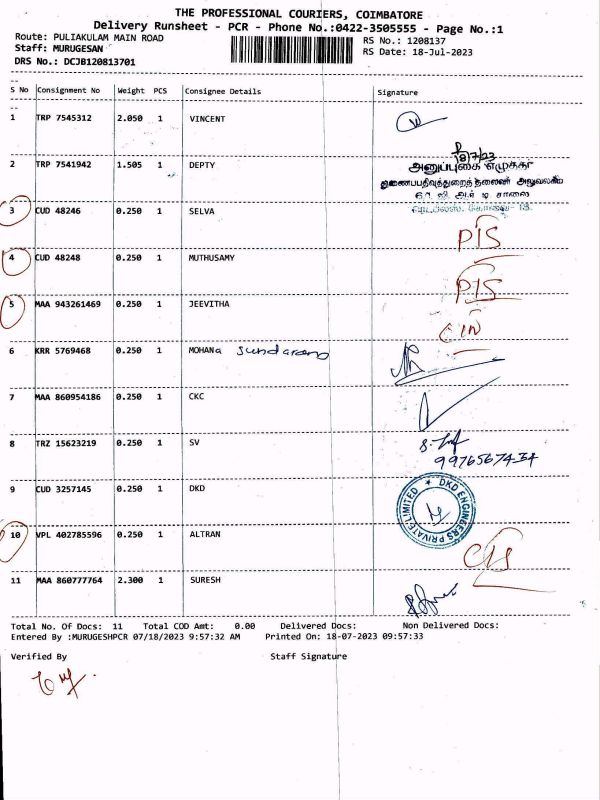 THE PROFESSIONAL COURIERS, COIMBATORE
Delivery Runsheet - PCR - Phone No.:0422-3505555 - Page No.:1
Route: PULIAKULAM MAIN ROAD RS No.: 1208137
Staff: MURUGESAN RS Date: 18-Jul-2023
DRS No.: DCJB120813701
S No Consignment No Weight PCS Consignee Details Signature
1 TRP 7545312 2.050 1 VINCENT
18/7/23
2 TRP 7541942 1.505 1 DEPTY அனுப்புகை எழுத்தர்
3 CUD 48246 0.250 1 SELVA
PIS
4 CUD 48248 0.250 1 MUTHUSAMY
PIS
5 MAA 943261469 0.250 1 JEEVITHA
6 KRR 5769468 0.250 1 MOHANa Sundaram
7 MAA 860954186 0.250 1 CKC
8 TRZ 15623219 0.250 1 SV
9 CUD 3257145 0.250 1 DKD
DKD ENGINEERS PRIVATE LIMITED
10 VPL 402785596 0.250 1 ALTRAN
11 MAA 860777764 2.300 1 SURESH
Total No. Of Docs: 11 Total COD Amt: 0.00 Delivered Docs: Non Delivered Docs:
Entered By :MURUGESHPCR 07/18/2023 9:57:32 AM Printed On: 18-07-2023 09:57:33
Verified By Staff Signature